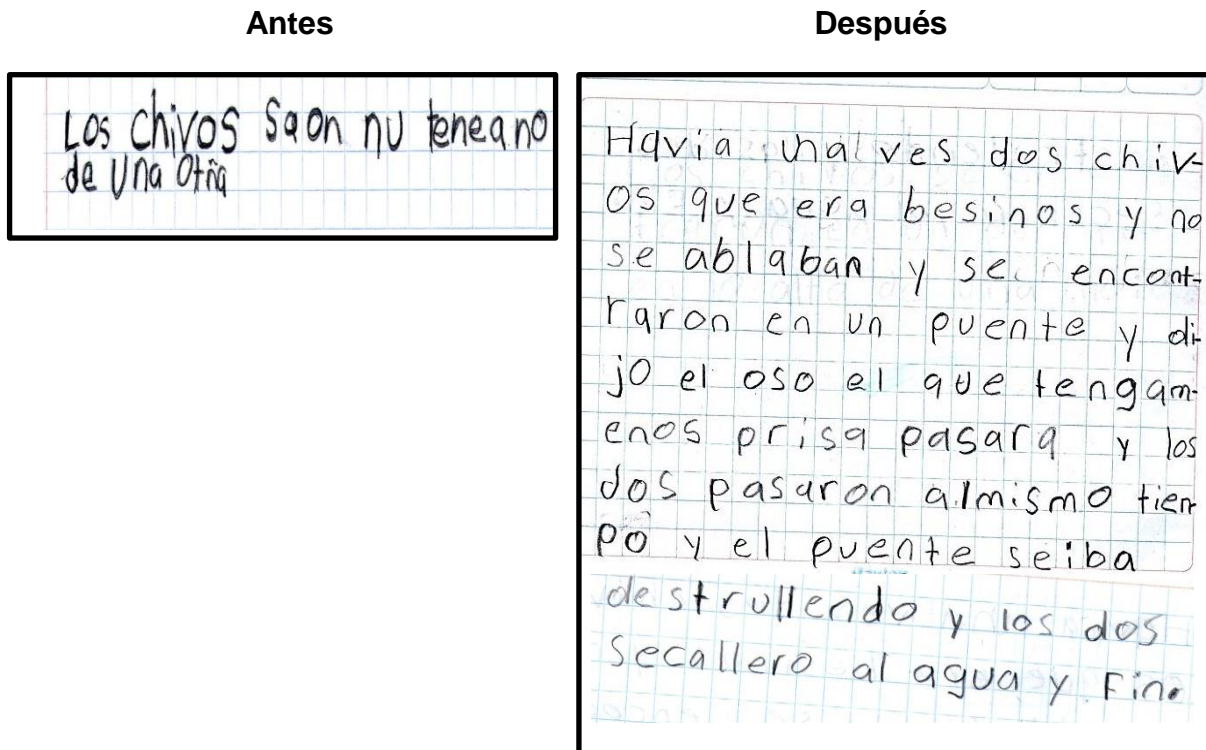 Antes
Después
Los chivos Saon nu teneano
de una Otña
Havia unalves dos chiv-
os que era besinos y no
se ablaban y se encont-
raron en un puente y di-
jo el oso el que tengam-
enos prisa pasara y los
dos pasaron almismo tien
po y el puente seiba
destrullendo y los dos
secallero al agua y Fin.